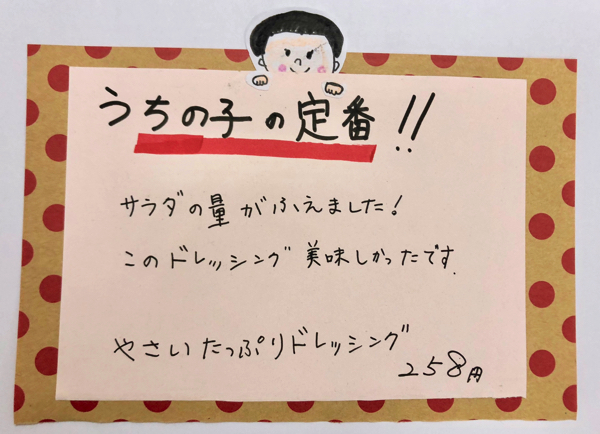 うちの子の定番!!
サラダの量がふえました!
このドレッシング美味しかったです.
やさいたっぷりドレッシング
258円